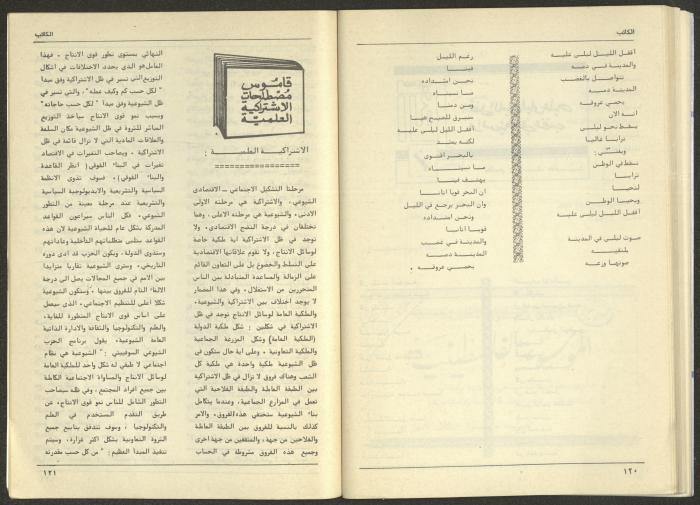 الكاتب
أقفل الليل ليلى عليه
والمدينة في دمه
تتواصل بالغضب
المدينة دمــه
يحمي عروقه
انه الآن
يسقط نحو ليلى
ترابا غاليا
ويغني :
نسقط في الوطن
ترابــا
لنحيــا
ويحيــا الوطــن
أقفل الليل ليلى عليه
صوت ليلى في المدينة
يلتقيــه
صوتها ورعــه
رغم الليل
فينــا
نحن امتداده
ما نســاه
ومن دمنــا
سيرق للصبح هيا
أقفل الليل ليلى عليه
لكنه يمتد
بالبحر أقوى
ما نســاه
يهتف فينــا
ان البحر فويا اتانــا
وان البحر يرجع في الليل
ونحن امتداده
فويــا اتانــا
والمدينة في غضب
المدينــة دمــه
يحمــي عروقــه .
١٢٠
الكاتب
قاموس
مصطلحات
الاشتراكية
العلمية
الاشتراكية العلمية :
مرحلتا التشكيل الاجتماعي ــ الاقتصادي
الشيوعي، والاشتراكية هي مرحلته الاولى
الادنى، والشيوعية هي مرحلته الاعلى، وهما
تختلفان في درجة النضج الاقتصادي. ولا
توجد في ظل الاشتراكية أية ملكية خاصة
لوسائل الانتاج، ولا تقوم علاقاتها الاقتصادية
على التسلط والخضوع بل على التعاون القائم
على الزمالة والمساعدة المتبادلة بين الناس
المتحررين من الاستغلال. وفي هذا المضمار
لا يوجد اختلاف بين الاشتراكية والشيوعية.
والملكية العامة لوسائل الانتاج توجد في ظل
الاشتراكية في شكلين : شكل ملكية الدولة
(الملكية العامة) وشكل المزرعة الجماعية
والملكية التعاونية. وعلى أية حال ستكون في
ظل الشيوعية ملكية واحدة هي ملكية كل
الشعب وهناك فروق لا تزال في ظل الاشتراكية
بين الطبقة العاملة والطبقة الفلاحية التي
تعمل في المزارع الجماعية، وعندما يتكامل
بناء الشيوعية ستختفي هذه الفروق. والامر
كذلك بالنسبة للفروق بين الطبقة العاملة
والفلاحين من جهة، والمثقفين من جهة اخرى
وجميع هذه الفروق مشروطة في الحساب
النهائي بمستوى تطور قوى الانتاج. فهذا
العامل هو الذي يحدد الاختلافات في اشكال
التوزيع التي تسير في ظل الاشتراكية وفق مبدأ
" لكل حسب كم وكيف عمله "، والتي تسير في
ظل الشيوعية وفق مبدأ " لكل حسب حاجاته "
وبسبب نمو قوى الانتاج سيأخذ التوزيع
المباشر للثروة في ظل الشيوعية مكان السلعة
والعلاقات المادية التي لا تزال قائمة في ظل
الاشتراكية. ويصاحب التغيرات في الاقتصاد
تغيرات في البناء الفوقي (انظر القاعدة
والبناء الفوقي). فسوف تذوي الانظمة
السياسية والتشريعية والايديولوجية السياسية
والتشريعية عند مرحلة معينة من التطور
الشيوعي، فكل الناس سيراعون القواعد
المدركة بشكل عام للحياة الشيوعية لان هذه
القواعد ستلبي متطلباتهم الداخلية وعاداتهم
وستذوي الدولة، ويكون الحزب قد أدى دوره
التاريخي. وسترى الشيوعية تقاربا متزايدا
بين الامم في جميع المجالات يصل الى درجة
الالغاء التام للفروق بينها. وستكون الشيوعية
شكلا أعلى للتنظيم الاجتماعي، الذي سيعمل
على أساس قوى الانتاج المتطورة للغاية،
والعلم والتكنولوجيا والثقافة والادارة الذاتية
العامة الشيوعية. يقول برنامج الحزب
الشيوعي السوفييتي : " الشيوعية هي نظام
اجتماعي لا طبقي له شكل واحد للملكية العامة
لوسائل الانتاج والمساواة الاجتماعية الكاملة
بين جميع أفراد المجتمع، وفي ظله سيصاحب
التطور الشامل للناس نمو قوى الانتاج، عن
طريق التقدم المستخدم في العلم
والتكنولوجيا، وسوف تتدفق ينابيع جميع
الثروة التعاونية بشكل اكثر غزارة، وسيتم
تنفيذ المبدأ العظيم : " من كل حسب مقدرته
١٢١